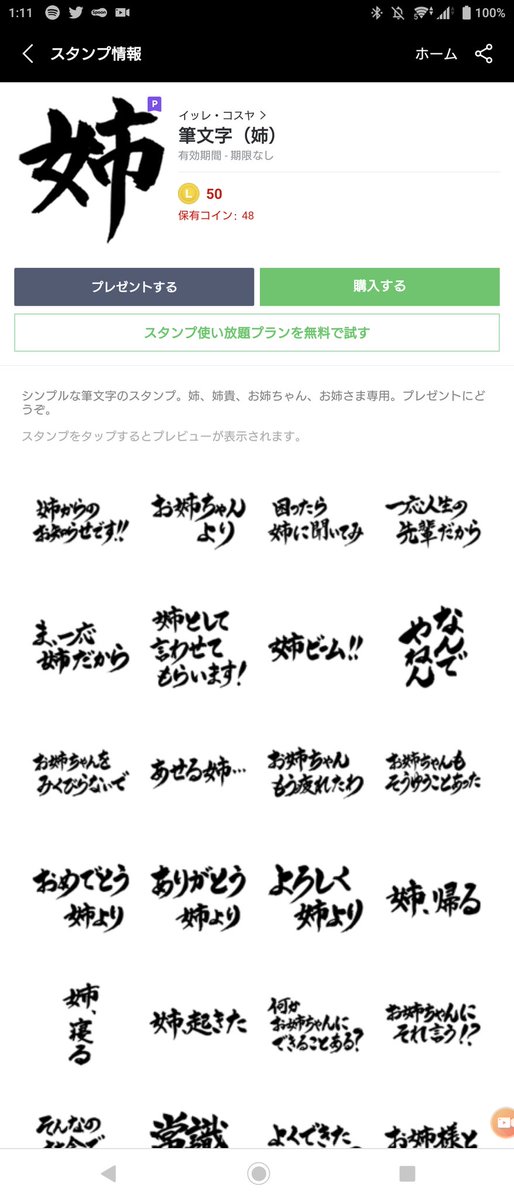 1:11
100%
スタンプ情報
ホーム
姉
P
イッレ・コスヤ
筆文字（姉）
有効期間 - 期限なし
L 50
保有コイン: 48
プレゼントする
購入する
スタンプ使い放題プランを無料で試す
シンプルな筆文字のスタンプ。姉、姉貴、お姉ちゃん、お姉さま専用。プレゼントにど
うぞ。
スタンプをタップするとプレビューが表示されます。
姉からの
お知らせです!!
お姉ちゃん
より
困ったら
姉に聞いてみ
一応人生の
先輩だから
ま、一応
姉だから
姉として
言わせて
もらいます!
姉ビーム!!
なんで
やねん
お姉ちゃんを
みくびらないで
あせる姉…
お姉ちゃん
もう疲れたわ
お姉ちゃんも
そうゆうことあった
おめでとう
姉より
ありがとう
姉より
よろしく
姉より
姉、帰る
姉、
寝る
姉、起きた
何か
お姉ちゃんに
できることある?
お姉ちゃんに
それ言う!?
そんなの
常識
よくできた
お姉様と